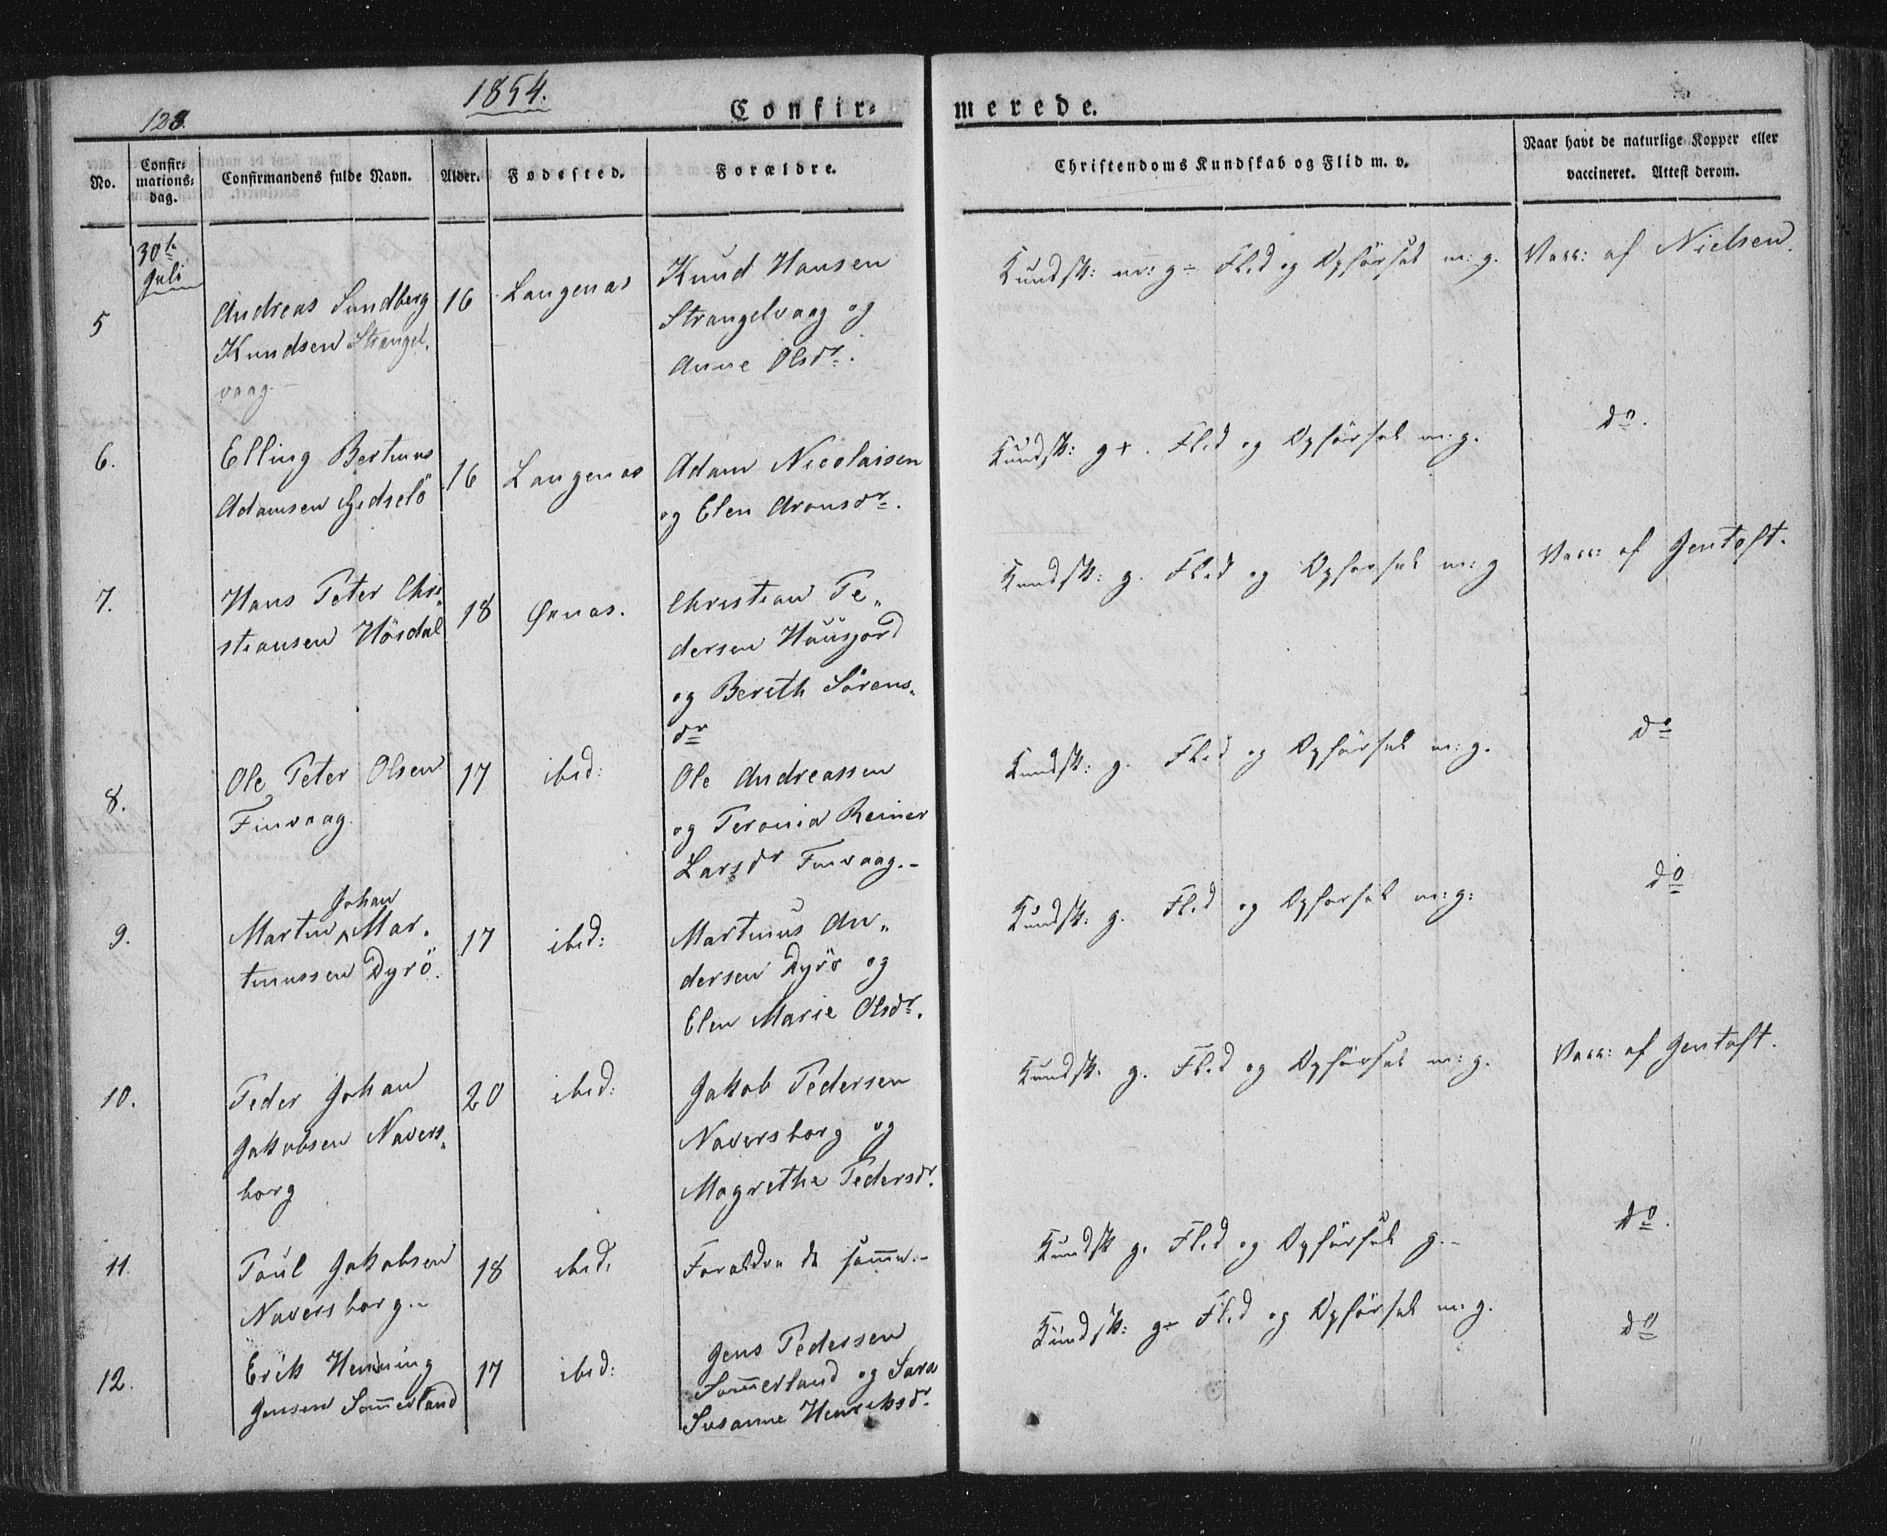 128.
1854.
Confir=
merede.
No.
Confir=
mations=
dag.
Confirmandens fulde Navn.
Alder.
Fødested.
Forældre.
Christendoms Kundskab og Flid m. v.
Naar havt de naturlige Kopper eller
vaccineret. Attest derom.
30te
Juli
5
Andreas Sundberg
Knudsen Strangel.
vaag
16
Langenæs
Knud Hansen
Strangelvaag og
Anne Olsdr.
Kundsk: m: g ÷ Flid og Opförsel m: g.
Vacc: af Nielsen.
6.
Elling Bertinus
Adamsen Gidselö
16
Langenæs
Adam Nicolaisen
og Elen Aronsdr.
Kundsk: g +. Flid og Opförsel m: g.
do.
7.
Hans Peter Chri„
stiansen Hösdal
18
Øxnæs.
Christian Pe„
dersen Haugjord
og Bereth Sörens„
dr
Kundsk: g. Flid og Opförsel m: g
Vacc: af Gentoft.
8.
Ole Peter Olsen
Finvaag.
17
ibid:
Ole Andreassen
og Peronia Reiner
Larsdr Finvaag.-
Kundsk: g. Flid og Opförsel m: g.
do
9.
Johan
Martin Mar„
tinussen Dyrö.
17
ibid:
Martinus An„
dersen Dyrö og
Elen Marie Olsdr.
Kundsk: g. Flid og Opförsel m: g:
do
10.
Peder Johan
Jakobsen Navers„
borg
20
ibid:
Jakob Pedersen
Naversborg og
Magrethe Pedersdr.
Kundsk. g. Flid og Opförsel m: g.
Vacc: af Gentoft.
11.
Poul Jakobsen
Naversborg.-
18
ibid.
Forældre de samme.-
Kundsk g. Flid og Opförsel g.-
do.
12.
Erik Henning
Jensen Som̅erland
17
ibid:
Jens Pedersen
Som̅erland og Sara
Susanne Henriksdr.
Kundsk: g÷ Flid og Opförsel m: g.
do